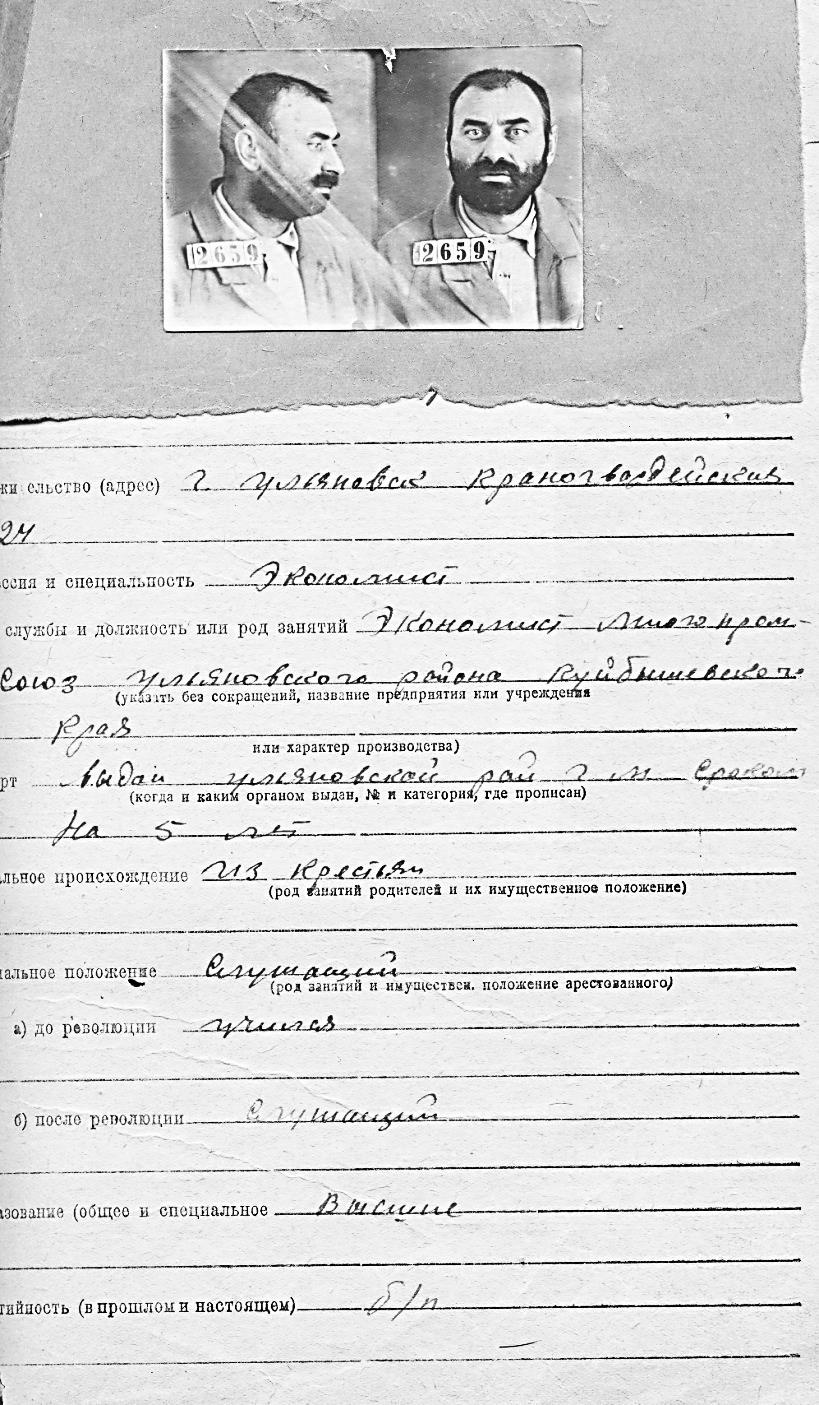 2659 2659
жи ельство (адрес) г. Ульяновск Краногвардейская
24
ессия и специальность Экономист
службы и должность или род занятий Экономист пром-
Союз Ульяновского района Куйбышевского
(указать без сокращений, название предприятия или учреждения
Края
или характер производства)
рт выдан Ульяновской рай сроком
(когда и каким органом выдан, № и категория, где прописан)
На 5 лет
льное происхождение Из Крестьян
(род занятий родителей и их имущественное положение)
иальное положение Служащий
(род занятий и имуществен. положение арестованного)
а) до революции учился
б) после революции Служащий
азование (общее и специальное Высшие
тийность (в прошлом и настоящем) б/п